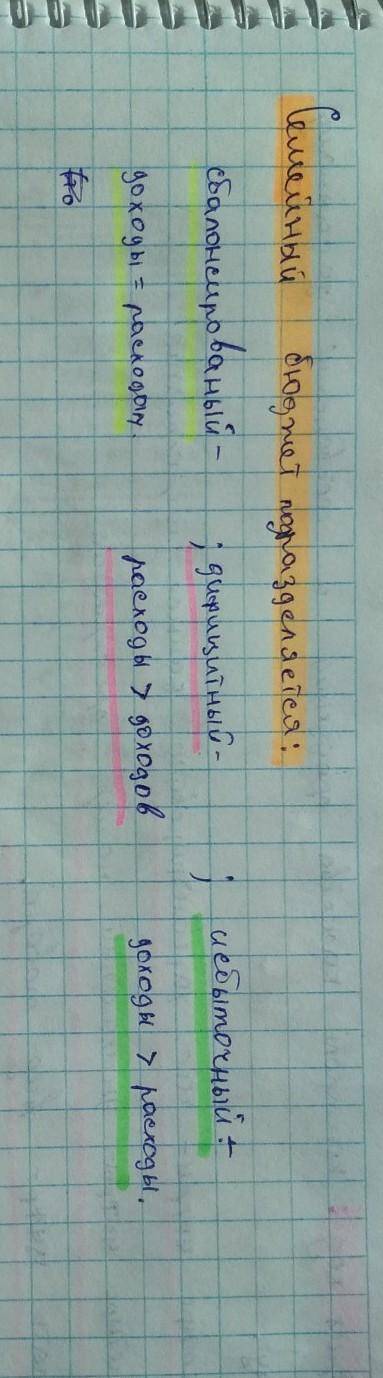 Семейный бюджет подразделяется:
сбалонсированый - ; дифицитный - ; исбыточный -
доходы = расходам. расходы > доходов доходы > расходы.